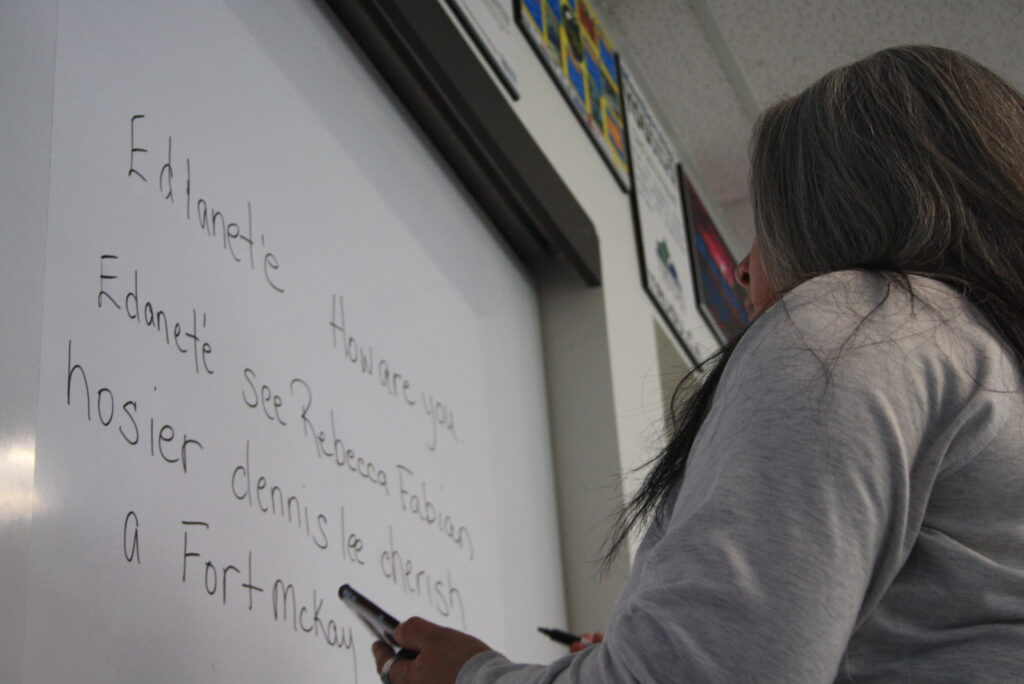 Edlanet'e
How are you.
Edanet'e see Rebecca Fabian
hosier dennis lee cherish
a Fort McKay